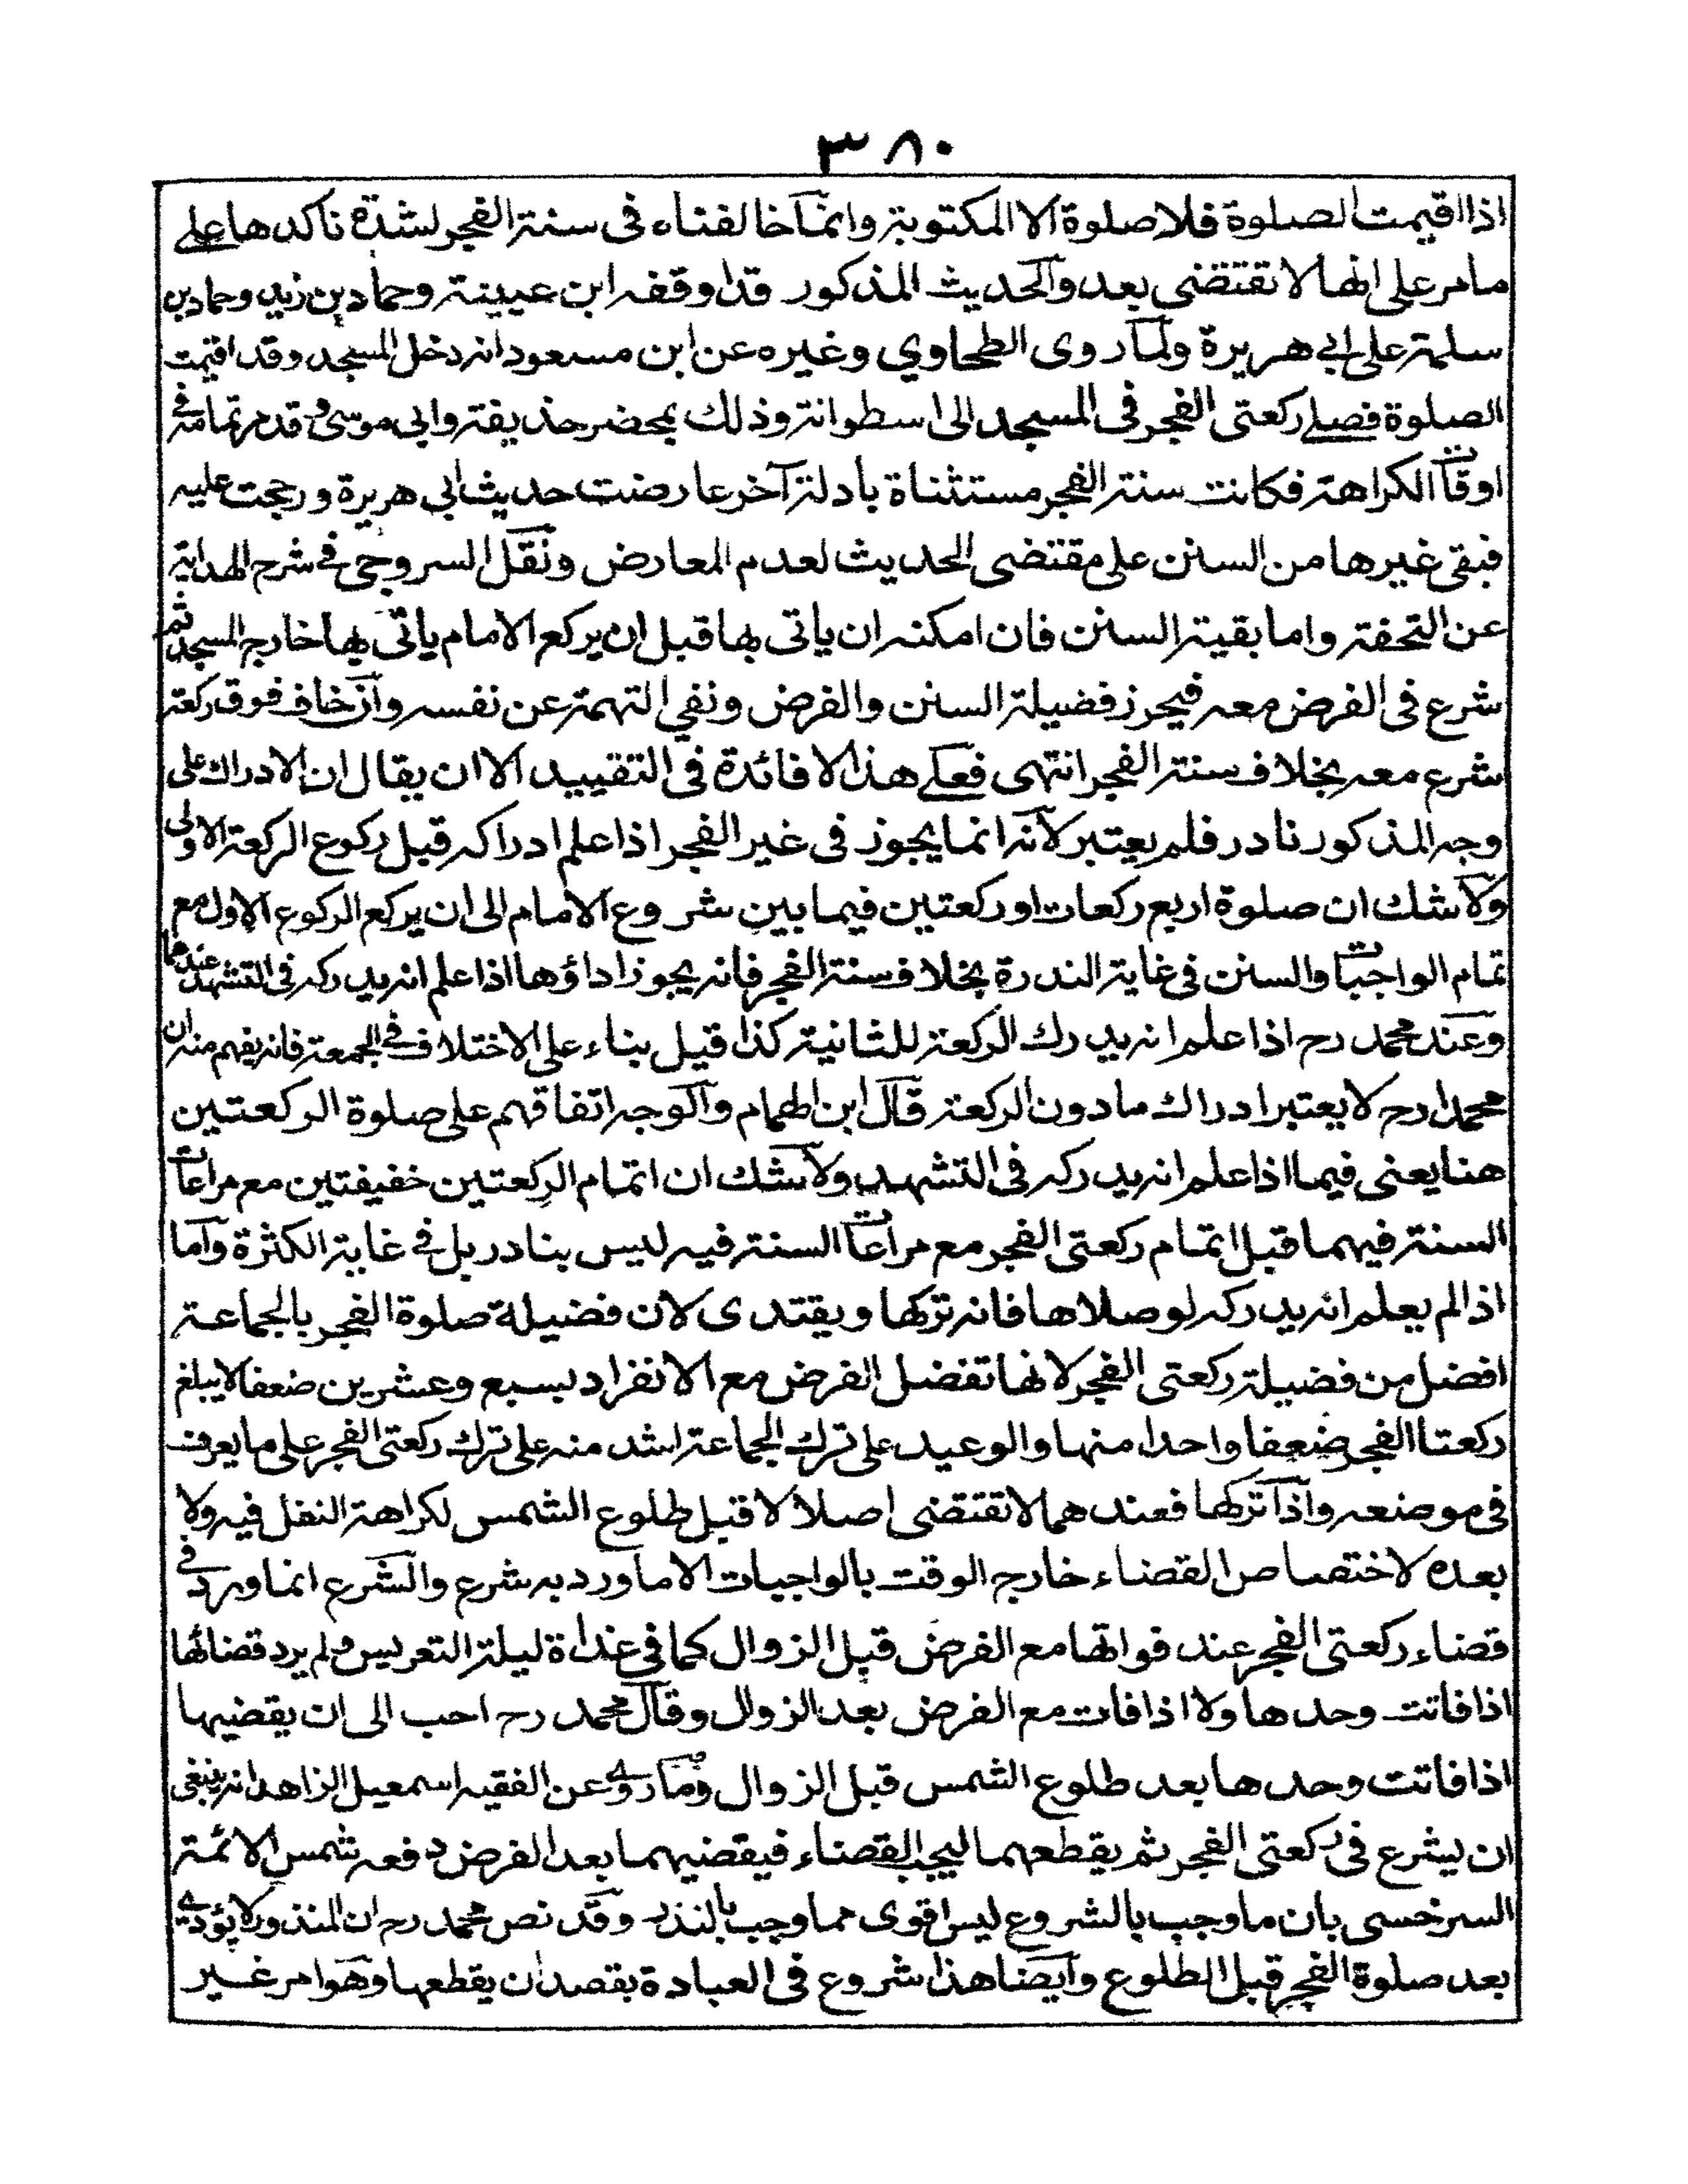 ٣٨٠
اذا اقيمت الصلوة فلا صلوة الا المكتوبة وانما خالفناه فى سنة الفجر لشدة تاكدها على
ما مر على انها لا تقتضى بعد والحديث المذكور قد اوقفه ابن عيينة وحماد بن زيد وحماد بن
سلمة على ابي هريرة ولما روى الطحاوي وغيره عن ابن مسعود انه دخل المسجد وقد اقيمت
الصلوة فصلے ركعتى الفجر فى المسجد الى اسطوانة وذلك بمحضر حذيفة وابي موسى وقد مر تمامه فے
اوقات الكراهة فكانت سنة الفجر مستثناة بادلة آخر عارضت حديث ابى هريرة ورجحت عليه
فبقى غيرها من السنن على مقتضى الحديث لعدم المعارض ونقل السروجى فے شرح الهداية
عن التحفة واما بقية السنن فان امكنه ان ياتى بها قبل ان يركع الامام ياتى بها خارج المسجد ثم
شرع فى الفرض معه فيحرز فضيلة السنن والفرض ونفي التهمة عن نفسه وان خاف فوق ركعة
شرع معه بخلاف سنة الفجر انتهى فعلے هذا لا فائدة فى التقييد الا ان يقال ان الادراك على
وجه المذكور نادر فلم يعتبر لانه انما يجوز فى غير الفجر اذا علم ادراكه قبل ركوع الركعة الاولى
ولا شك ان صلوة اربع ركعات او ركعتين فيما بين شروع الامام الى ان يركع الركوع الاول مع
تمام الواجبات والسنن فى غاية الندرة بخلاف سنة الفجر فانه يجوز اداؤها اذا علم انه يدركه فى التشهد عندهما
وعند محمد رح اذا علم انه يدرك الركعة للثانية كذا قيل بناء على الاختلاف فے الجمعة فانه يفهم منه ان
محمدا رح لا يعتبر ادراك ما دون الركعة قال ابن الهمام والوجه اتفاقهم على صلوة الركعتين
هنا يعنى فيما اذا علم انه يدركه فى التشهد ولا شك ان اتمام الركعتين خفيفتين مع مراعات
السنة فيهما قبل اتمام ركعتى الفجر مع مراعات السنة فيه ليس بنادر بل فے غاية الكثرة واما
اذا لم يعلم انه يدركه لو صلاها فانه تركها ويقتدى لان فضيلة صلوة الفجر بالجماعة
افضل من فضيلة ركعتى الفجر لانها تفضل الفرض مع الانفراد بسبع وعشرين ضعفا لا يبلغ
ركعتا الفجر ضعفا واحدا منها والوعيد على ترك الجماعة اشد منه على ترك ركعتى الفجر على ما يعرف
فى موضعه واذا تركها فعندهما لا تقتضى اصلا لا قبل طلوع الشمس لكراهة النفل فيه ولا
بعده لاختصاص القضاء خارج الوقت بالواجبات الا ما ورد به شرع والشرع انما ورد فے
قضاء ركعتى الفجر عند فواتها مع الفرض قبل الزوال كما فى غداة ليلة التعريس ولم يرد قضائها
اذا فاتت وحدها ولا اذا فات مع الفرض بعد الزوال وقال محمد رح احب الى ان يقضيها
اذا فاتت وحدها بعد طلوع الشمس قبل الزوال وما روے عن الفقيه اسمعيل الزاهد انه ينبغى
ان يشرع فى ركعتى الفجر ثم يقطعهما ليجب القضاء فيقضيهما بعد الفرض دفعه شمس الائمة
السرخسى بان ما وجب بالشروع ليس اقوى مما وجب بالنذر وقد نص محمد رح ان المنذور لا يؤدے
بعد صلوة الفجر قبل الطلوع وايضا هذا شروع فى العبادة بقصد ان يقطعها وهو امر غير